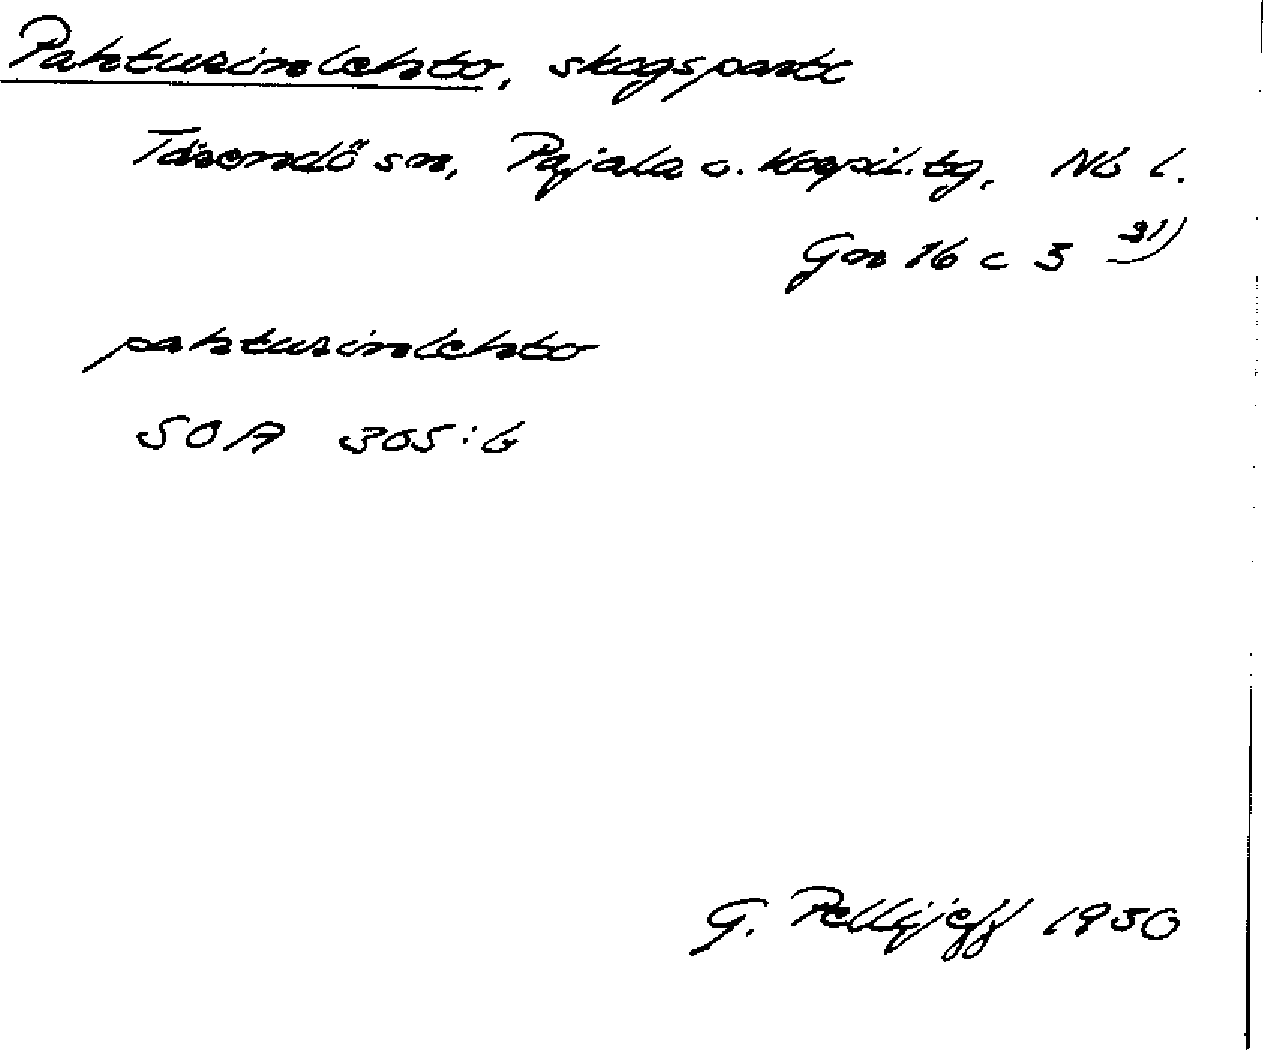 Pahturinlehto, skogsparti
Tärendö sn, Pajala o. Korpil. tg, Nb l.
Gn 16 c 3 31)
pahturinlehto
SOA 305:6
G. Pellijeff 1950